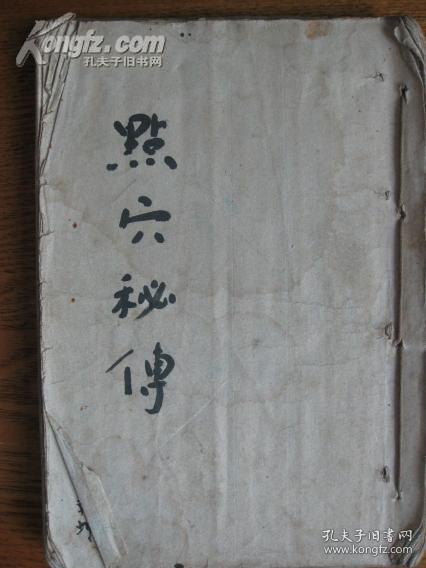 Kongfz.com
孔夫子旧书网
點穴秘傳
孔夫子旧书网
www.kongfz.com